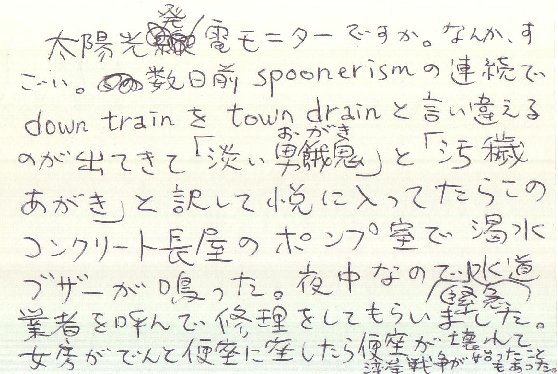 太陽光発電モニターですか。なんか、す
ごい。数日前spoonerismの連続で
down trainをtown drainと言い違える
のが出てきて「淡い男餓鬼」と「汚穢
おがき
あがき」と訳して悦に入ってたらこの
コンクリート長屋のポンプ室で渇水
ブザーが鳴った。夜中なので水道
業者を呼んで修理をしてもらいました。
緊急
女房がでんと便座に座したら便座が壊れて
湾岸戦争が始ったこと
もあった。